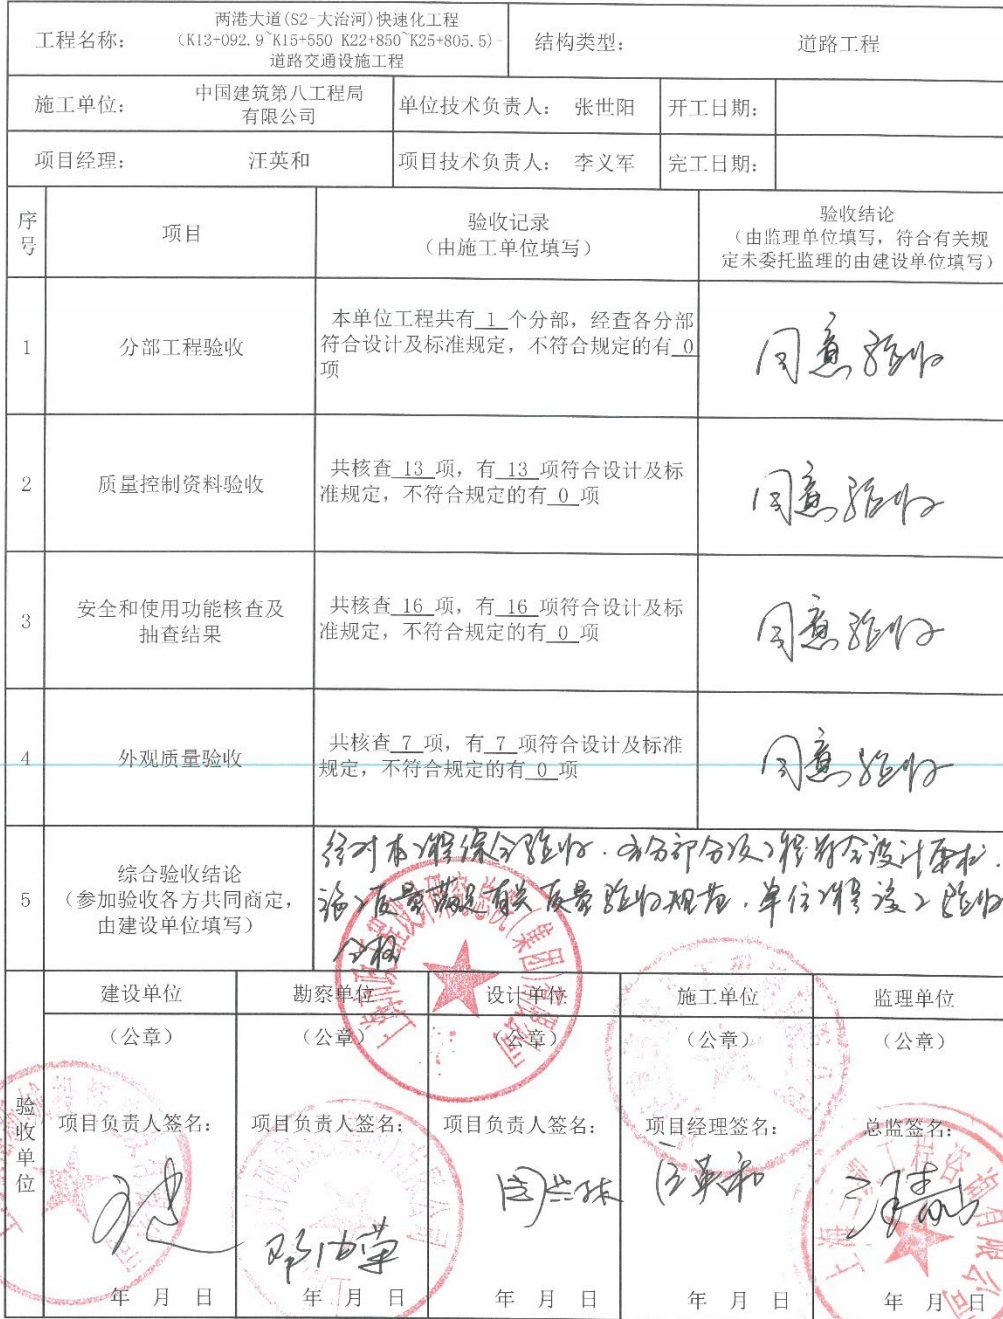 工程名称:
两港大道(S2-大治河)快速化工程
(K13+092.9~K15+550 K22+850~K25+805.5)-
道路交通设施工程
结构类型:
道路工程
施工单位:
中国建筑第八工程局
有限公司
单位技术负责人: 张世阳
开工日期:
项目经理:
汪英和
项目技术负责人: 李义军
完工日期:
序
号
项目
验收记录
(由施工单位填写)
验收结论
(由监理单位填写,符合有关规
定未委托监理的由建设单位填写)
1
分部工程验收
本单位工程共有 1 个分部,经查各分部
符合设计及标准规定,不符合规定的有 0
项
同意验收
2
质量控制资料验收
共核查 13 项,有 13 项符合设计及标
准规定,不符合规定的有 0 项
同意验收
3
安全和使用功能核查及
抽查结果
共核查 16 项,有 16 项符合设计及标
准规定,不符合规定的有 0 项
同意验收
4
外观质量验收
共核查 7 项,有 7 项符合设计及标准
规定,不符合规定的有 0 项
同意验收
5
综合验收结论
(参加验收各方共同商定,
由建设单位填写)
经对本工程综合验收.各分部分项工程符合设计要求.
施工质量满足有关质量验收规范.单位工程竣工验收
合格
验收单位
建设单位
勘察单位
设计单位
施工单位
监理单位
(公章)
(公章)
(公章)
(公章)
(公章)
项目负责人签名:
项目负责人签名:
项目负责人签名:
项目经理签名:
总监签名:
汪英和
年 月 日
年 月 日
年 月 日
年 月 日
年 月 日